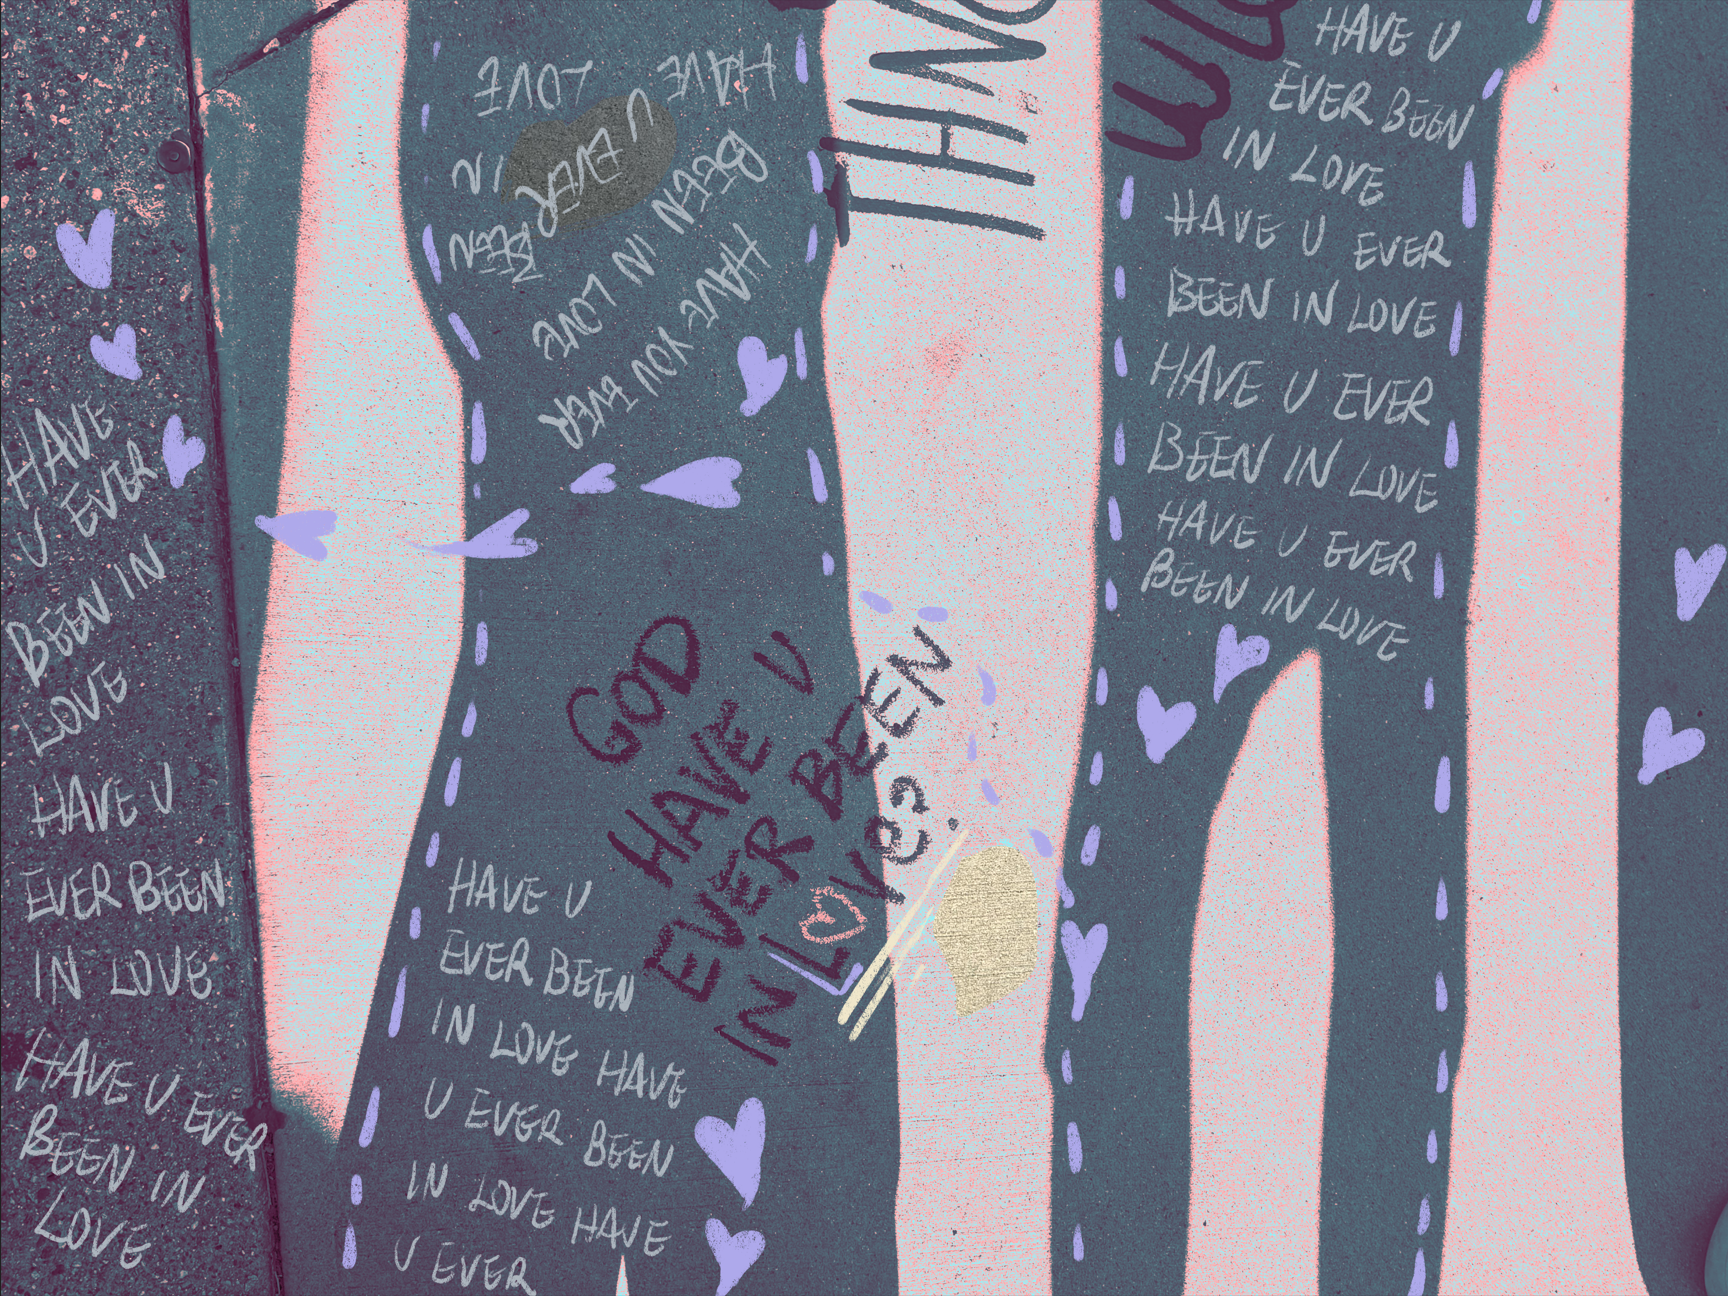 HAVE
U EVER
BEEN IN
LOVE
HAVE U
EVER BEEN
IN LOVE
HAVE U EVER
BEEN IN
LOVE
HAVE
U EVER
BEEN
IN
LOVE
HAVE YOU EVER
BEEN IN LOVE
GOD
HAVE U
EVER BEEN
IN LOVE?
HAVE U
EVER BEEN
IN LOVE HAVE
U EVER BEEN
IN LOVE HAVE
U EVER
HAVE U
EVER BEEN
IN LOVE
HAVE U EVER
BEEN IN LOVE
HAVE U EVER
BEEN IN LOVE
HAVE U EVER
BEEN IN LOVE